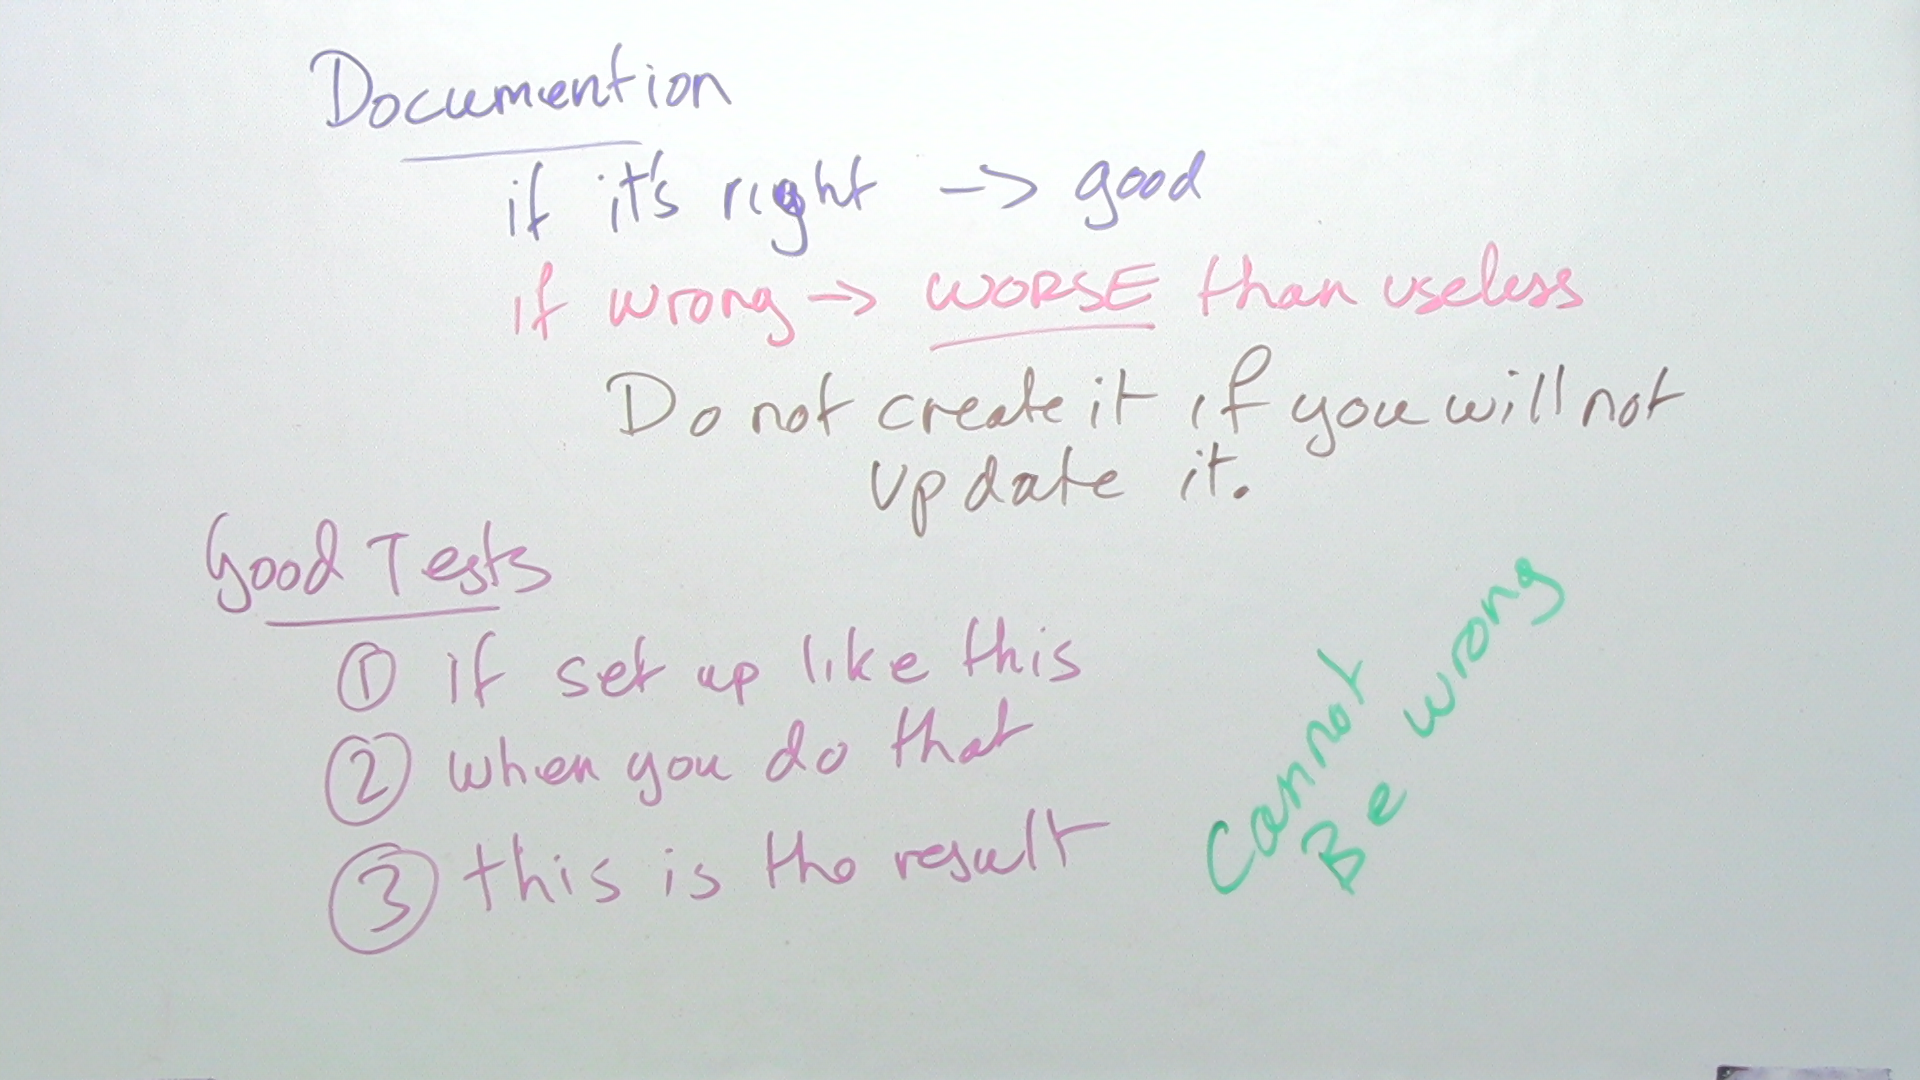 Documention
if it's right -> good
if wrong -> WORSE than useless
Do not create it if you will not
update it.
Good Tests
① if set up like this
② when you do that
③ this is the result
Cannot
Be wrong